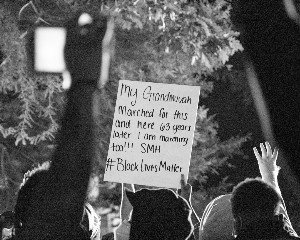 My Grandmovah
marched for this
and here 63 years
later I am marching
too!!! SMH
#BlackLivesMatter